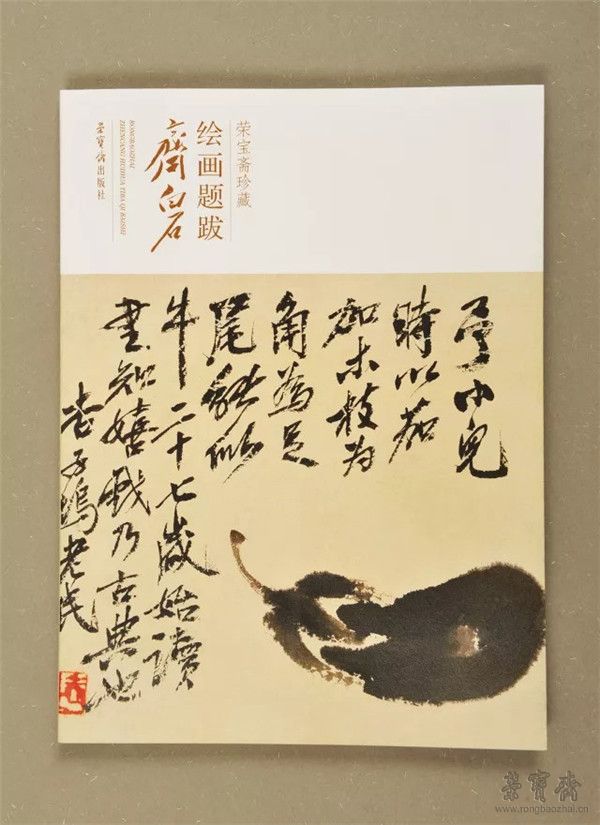 荣宝斋珍藏
绘画题跋
齊白石
RONGBAOZHAI
ZHENCANG HUIHUA TIBA QI BAISHI
榮寶齋出版社
予小兒
時以茄
加木枝为
角為足
尾能似
牛二十七歲始讀
書知嬉戲乃古典也
杏子塢老民
榮寶齋
www.rongbaozhai.cn